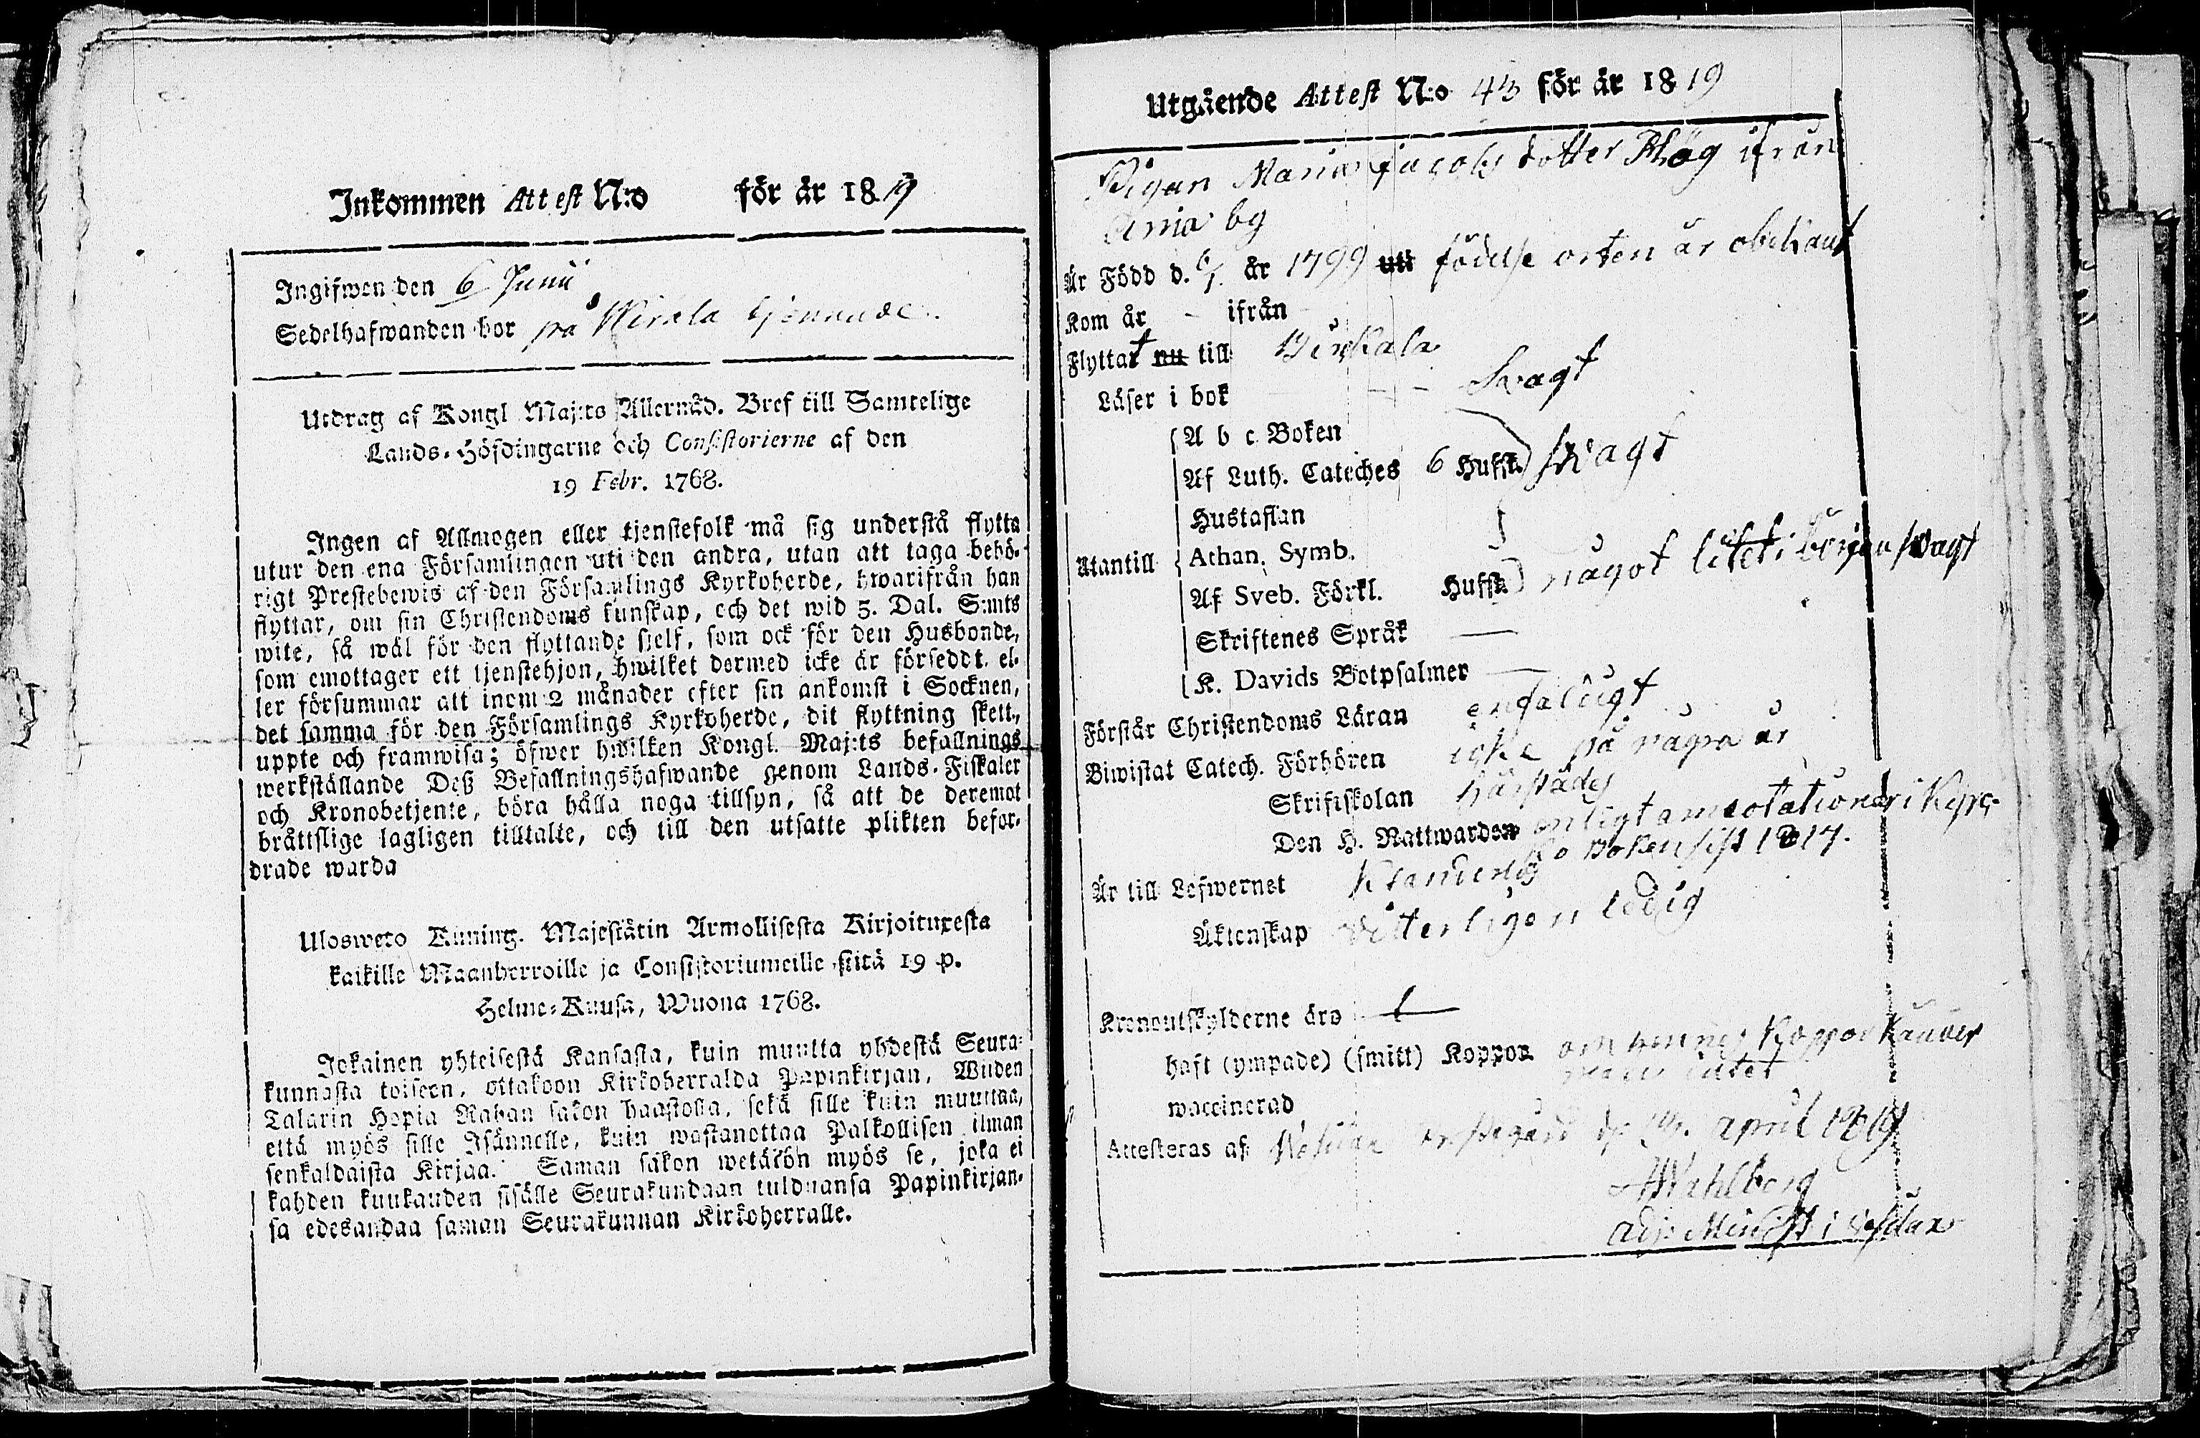 Inkommen Attest N:o för år 1819
Ingifwen den 6 Junii
Sedelhafwanden bor på Nirala tjenande.
Utdrag af Kongl Maj:ts Allernåd. Bref till Samtelige
Lands-Höfdingarne och Consistorierne af den
19 Febr. 1768.
Ingen af Allmogen eller tjenstefolk må sig understå flytta
utur den ena Församlingen uti den andra, utan att taga behö-
rigt Prestebewis af den Församlings Kyrkoherde, hwarifrån han
flyttar, om sin Christendoms kunskap, och det wid 3. Dal. S:mts
wite, så wäl för den flyttande sjelf, som ock för den Husbonde,
som emottager ett tjenstehjon, hwilket dermed icke är förseddt, el-
ler försummar att inom 2 månader efter sin ankomst i Socknen,
det samma för den Församlings Kyrkoherde, dit flyttning skett,
uppte och framwisa; öfwer hwilken Kongl. Maj:ts befallnings
werkställande Deß Befallningshafwande genom Lands-Fiskaler
och Kronobetjente, böra hålla noga tillsyn, så att de deremot
bråttslige lagligen tilltalte, och till den utsatte plikten befor-
drade warda
Ulosweto Kuning. Majestätin Armollisesta Kirjoituxesta
kaikille Maanherroille ja Consistoriumeille siitä 19 p.
Helme-Kuusa, Wuona 1768.
Jokainen yhteisestä Kansasta, kuin muutta yhdestä Seura-
kunnasta toiseen, ottakoon Kirkoherralda Papinkirjan, Wiiden
Talarin Hopia Rahan sakon haastolla, sekä sille kuin muuttaa,
että myös sille Isännelle, kuin wastanottaa Palkollisen ilman
senkaldaista Kirjaa. Saman sakon wetäkön myös se, joka ei
kahden kuukauden sisälle Seurakundaan tulduansa Papinkirjan-
sa edesandaa saman Seurakunnan Kirkoherralle.
Utgående Attest N:o 43 för år 1819
Pigan Maria Jacobs dotter Rhög ifrån
Ania by
Är Född d. 6/1. år 1799 uti födelse orten är obekant
Kom år - ifrån
Flyttat nu till Birkala
Läser i bok - - Svagt
A b c Boken
Af Luth. Cateches 6 Hufst. svagt
Hustaflan
Utantill Athan. Symb.
Af Sveb. Förkl. Hufst. något litet i början svagt
Skriftenes Språk —
K. Davids Botpsalmer —
Förstår Christendoms Läran enfaldigt
Biwistat Catech. Förhören icke på några år
Skriftskolan härstädes
Den H. Nattwarden enligt annotationer i Kyrc-
ko boken sist 1817.
Är till Lefwernet Klanderlig
Äktenskap Vetterligen ledig
Kronoutskylderne äro —
haft (ympade) (smitt) Koppor om hennes Koppor känner
man intet
waccinerad
Attesteras af Prestegård d. April 1819
Wahlberg
adj: Minist i Vesilax